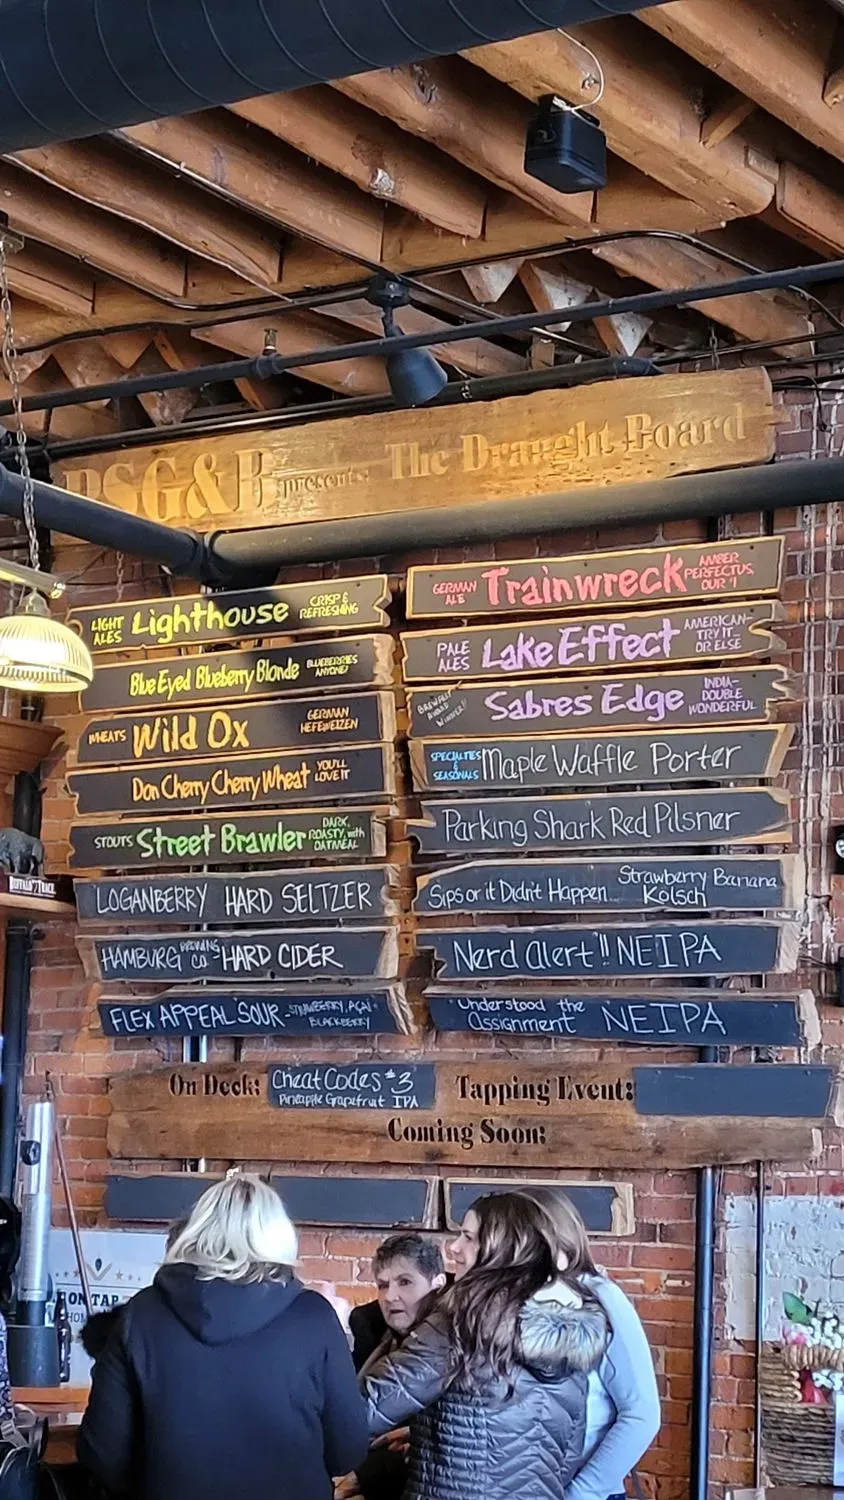 BSG&B presents: The Draught Board
LIGHT ALES Lighthouse CRISP & REFRESHING
Blue Eyed Blueberry Blonde BLUEBERRIES ANYONE?
WHEATS Wild Ox GERMAN HEFEWEIZEN
Don Cherry Cherry Wheat YOU'LL LOVE IT
STOUTS Street Brawler DARK, ROASTY, with OATMEAL
LOGANBERRY HARD SELTZER
HAMBURG BREWING CO HARD CIDER
FLEX APPEAL SOUR STRAWBERRY, ACAI BLACKBERRY
GERMAN ALE Trainwreck AMBER PERFECTUS, OUR #1
PALE ALES Lake Effect AMERICAN- TRY IT... OR ELSE
Sabres Edge INDIA- DOUBLE WONDERFUL
SPECIALTIES & SEASONALS Maple Waffle Porter
Parking Shark Red Pilsner
Sips or it Didn't Happen... Strawberry Banana Kölsch
Nerd Alert!! NEIPA
"Understood the Assignment" NEIPA
On Deck: Cheat Codes #3
Pineapple Grapefruit IPA
Tapping Event:
Coming Soon:
BUFFALO TRACE
ON TAP